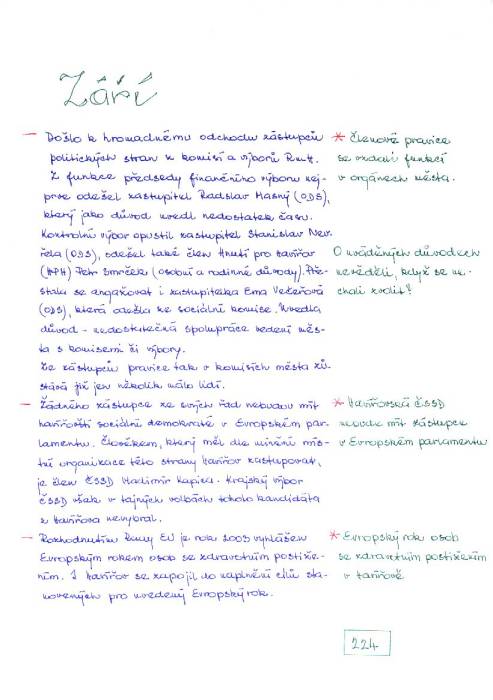 Září
— Došlo k hromadnému odchodu zástupců
politických stran z komisí a výborů RmH.
Z funkce předsedy finančního výboru nej-
prve odešel zastupitel Radslav Masný (ODS),
který jako důvod uvedl nedostatek času.
Kontrolní výbor opustil zastupitel Stanislav Nev-
řela (ODS), odešel také člen Hnutí pro Havířov
(HPH) Petr Smrček (osobní a rodinné důvody). Pře-
stala se angažovat i zastupitelka Ema
(ODS), která odešla ze sociální komise. Uvedla
důvod - nedostatečná spolupráce vedení měs-
ta s komisemi či výbory.
Ze zástupců pravice tak v komisích města zů-
stává již jen několik málo lidí.
— Žádného zástupce ze svých řad nebudou mít
havířovští sociální demokraté v Evropském par-
lamentu. Člověkem, který měl dle mínění míst-
ní organizace této strany Havířov zastupovat,
je člen ČSSD Vladimír Kapica. Krajský výbor
ČSSD však v tajných volbách tohoto kandidáta
z Havířova nevybral.
— Rozhodnutím Rady EU je rok 2003 vyhlášen
Evropským rokem osob se zdravotním postiže-
ním. I Havířov se zapojil do naplnění cílů sta-
novených pro uvedený Evropský rok.
* Členové pravice
se vzdali funkcí
v orgánech města.
O uváděných důvodech
nevěděli, když se ne-
chali zvolit?
* Havířovská ČSSD
nebude mít zástupce
v Evropském parlamentu
* Evropský rok osob
se zdravotním postižením
v Havířově
224